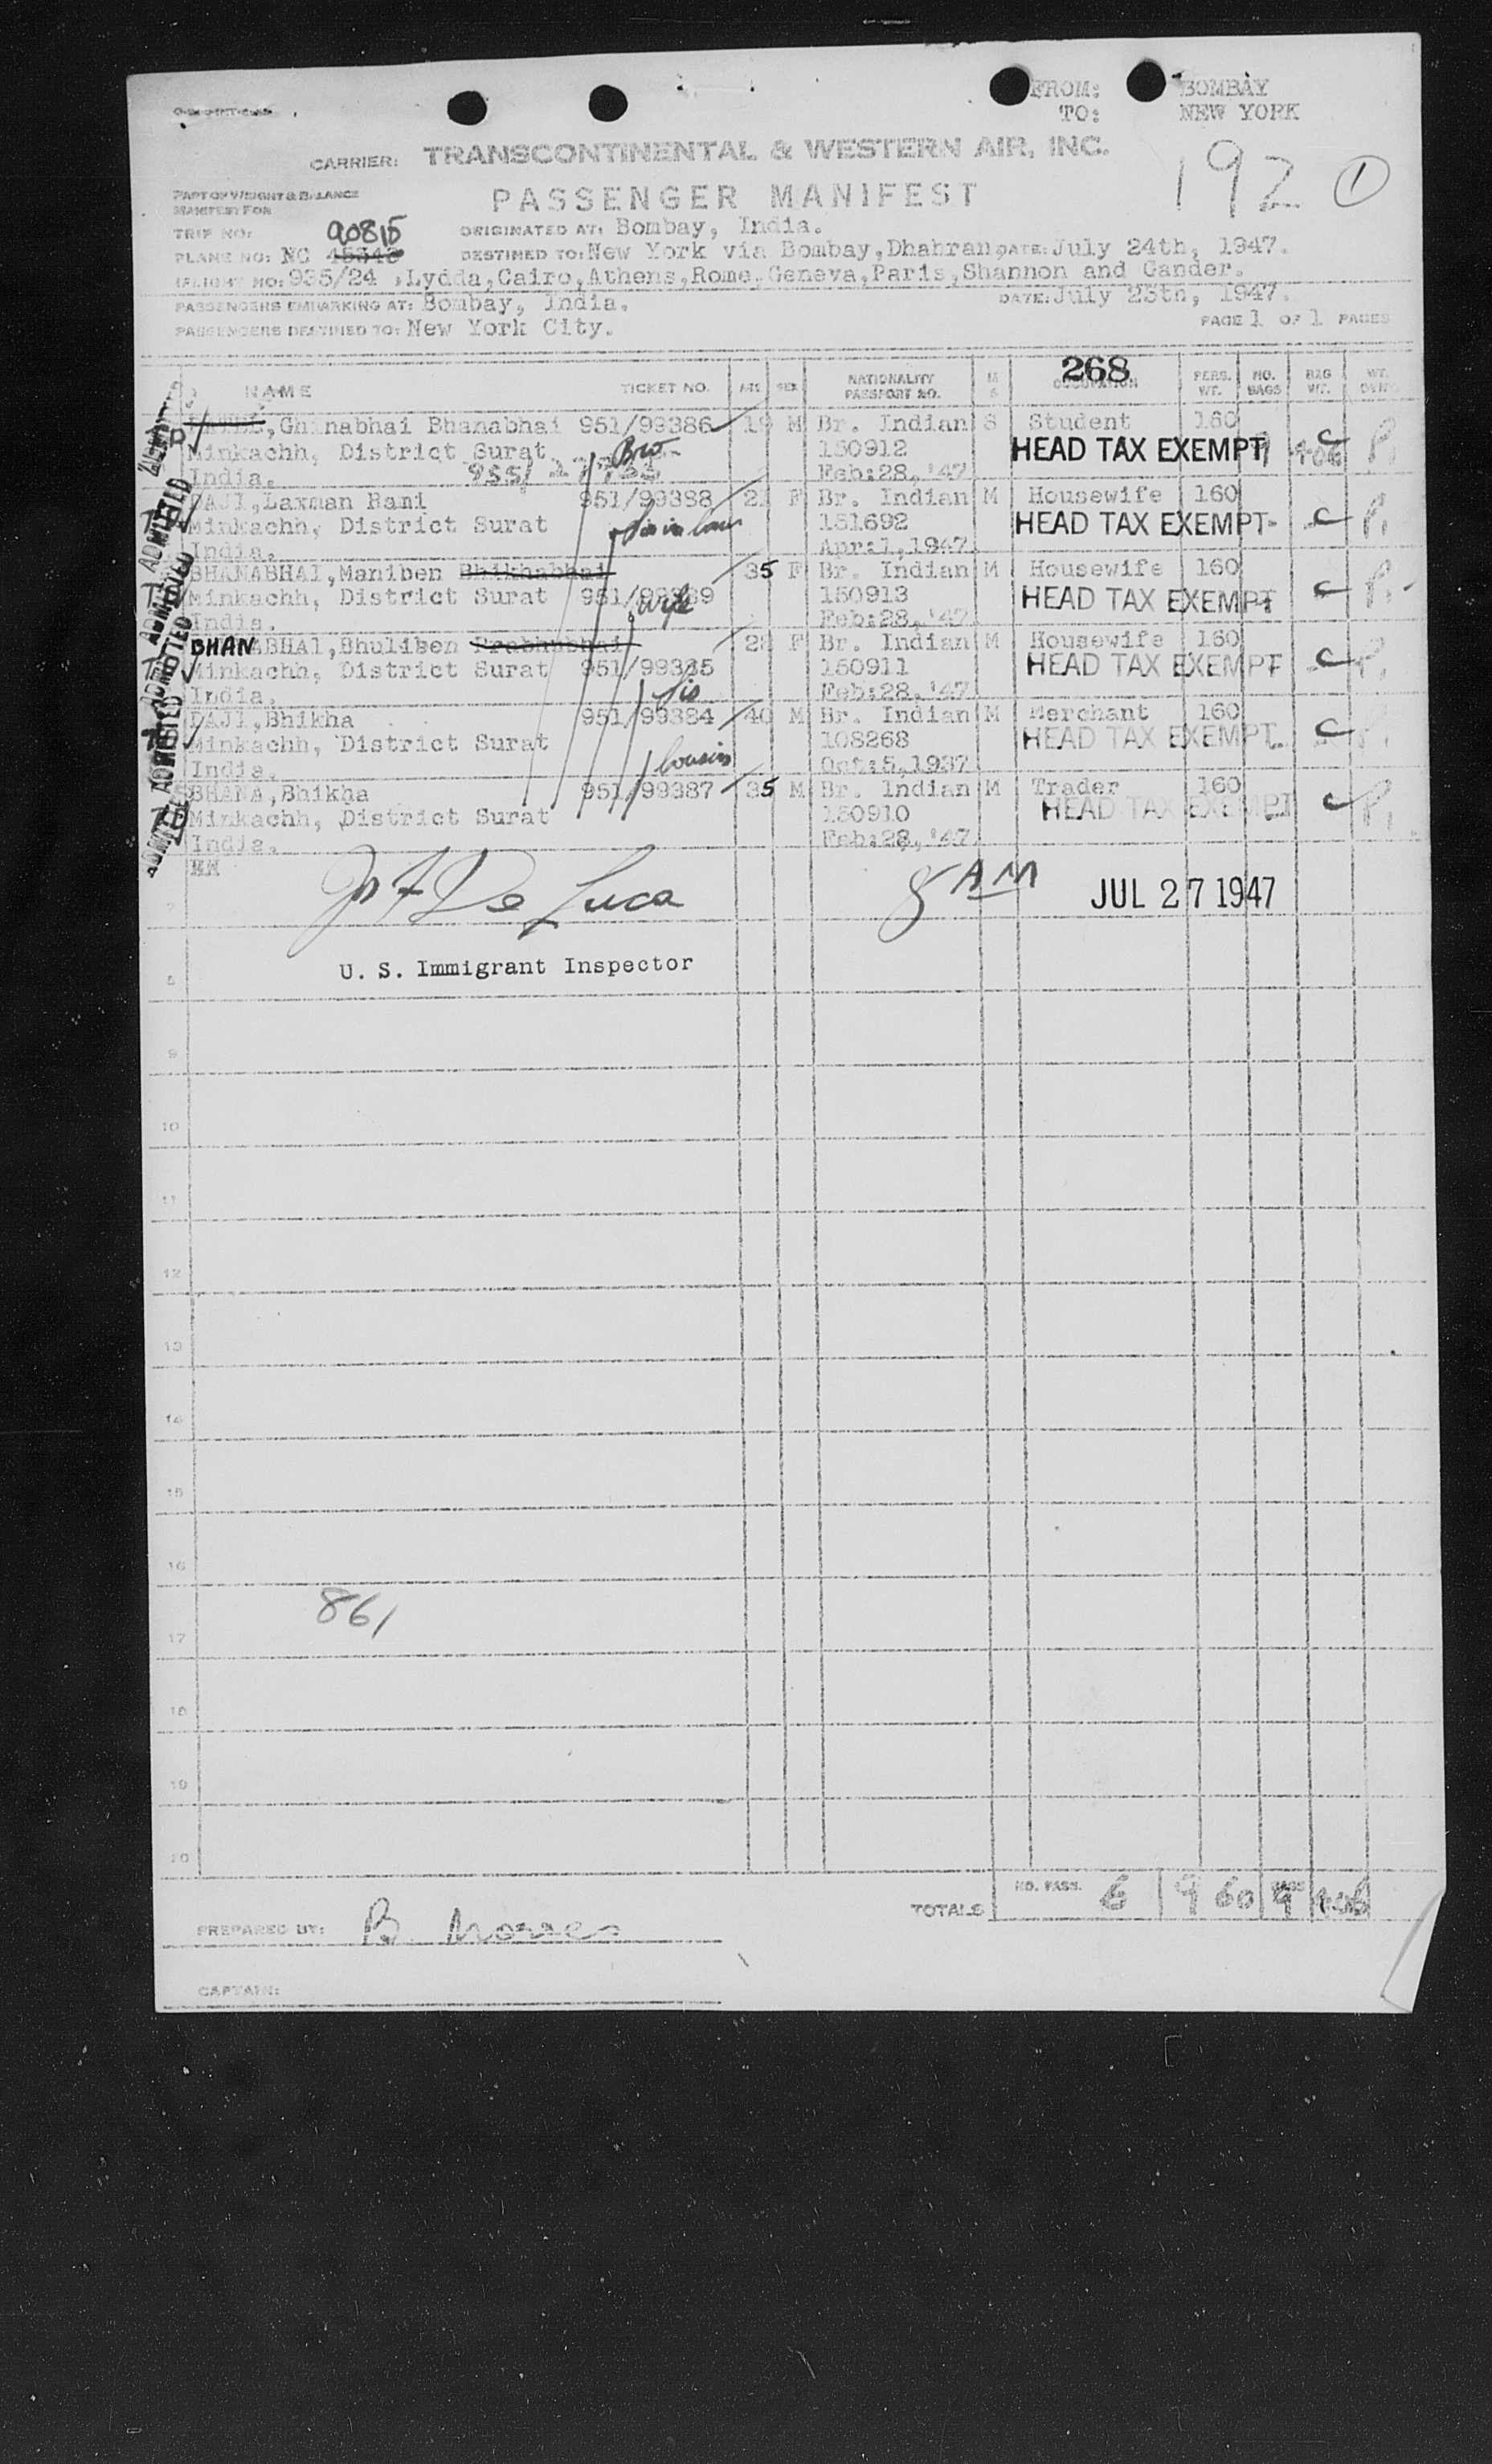 FROM: BOMBAY
TO: NEW YORK
CARRIER: TRANSCONTINENTAL & WESTERN AIR, INC.
192 1
PART OF WEIGHT & BALANCE
MANIFEST FOR
PASSENGER MANIFEST
TRIP NO: 90815
ORIGINATED AT: Bombay, India.
PLANE NO: NC 45346 DESTINED TO: New York via Bombay, Dhahran, DATE: July 24th, 1947.
FLIGHT NO: 935/24 , Lydda, Cairo, Athens, Rome, Geneva, Paris, Shannon and Gander.
PASSENGERS EMBARKING AT: Bombay, India. DATE: July 25th, 1947.
PASSENGERS DESTINED TO: New York City. PAGE 1 OF 1 PAGES
268
NAME TICKET NO. AGE SEX NATIONALITY PASSPORT NO. M S OCCUPATION PERS. WT. NO. BAGS BAG WT. WT.
,Ghinabhai Bhanabhai 951/99386 19 M Br. Indian S Student 160
Minkachh, District Surat Bro 150912 HEAD TAX EXEMPT
India. Feb:28,'47
DAJI,Laxman Rani 951/99388 21 F Br. Indian M Housewife 160
Minkachh, District Surat Sis in law 151692 HEAD TAX EXEMPT
India. Apr:1,1947
BHANABHAI,Maniben Bhikhabhai 35 F Br. Indian M Housewife 160
Minkachh, District Surat 951/99389 wife 150913 HEAD TAX EXEMPT
India. Feb:28,'47
BHANABHAI,Bhuliben Prabhubhai 28 F Br. Indian M Housewife 160
Minkachh, District Surat 951/99385 150911 HEAD TAX EXEMPT
India. Sis Feb:28,'47
DAJI,Bhikha 951/99384 40 M Br. Indian M Merchant 160
Minkachh, District Surat 108268 HEAD TAX EXEMPT
India. Cousin Oct:5,1937
BHANA,Bhikha 951/99387 35 M Br. Indian M Trader 160
Minkachh, District Surat 150910 HEAD TAX EXEMPT
India. Feb:28,'47
ADMITTED
ADMITTED
ADMITTED
ADMITTED
ADMITTED
ADMITTED
EM
De Luca 8 AM JUL 27 1947
7
U. S. Immigrant Inspector
8
9
10
11
12
13
14
15
16
861
17
18
19
20
TOTALS NO. PASS. 6 960 BAGS 9
PREPARED BY: B.
CAPTAIN: